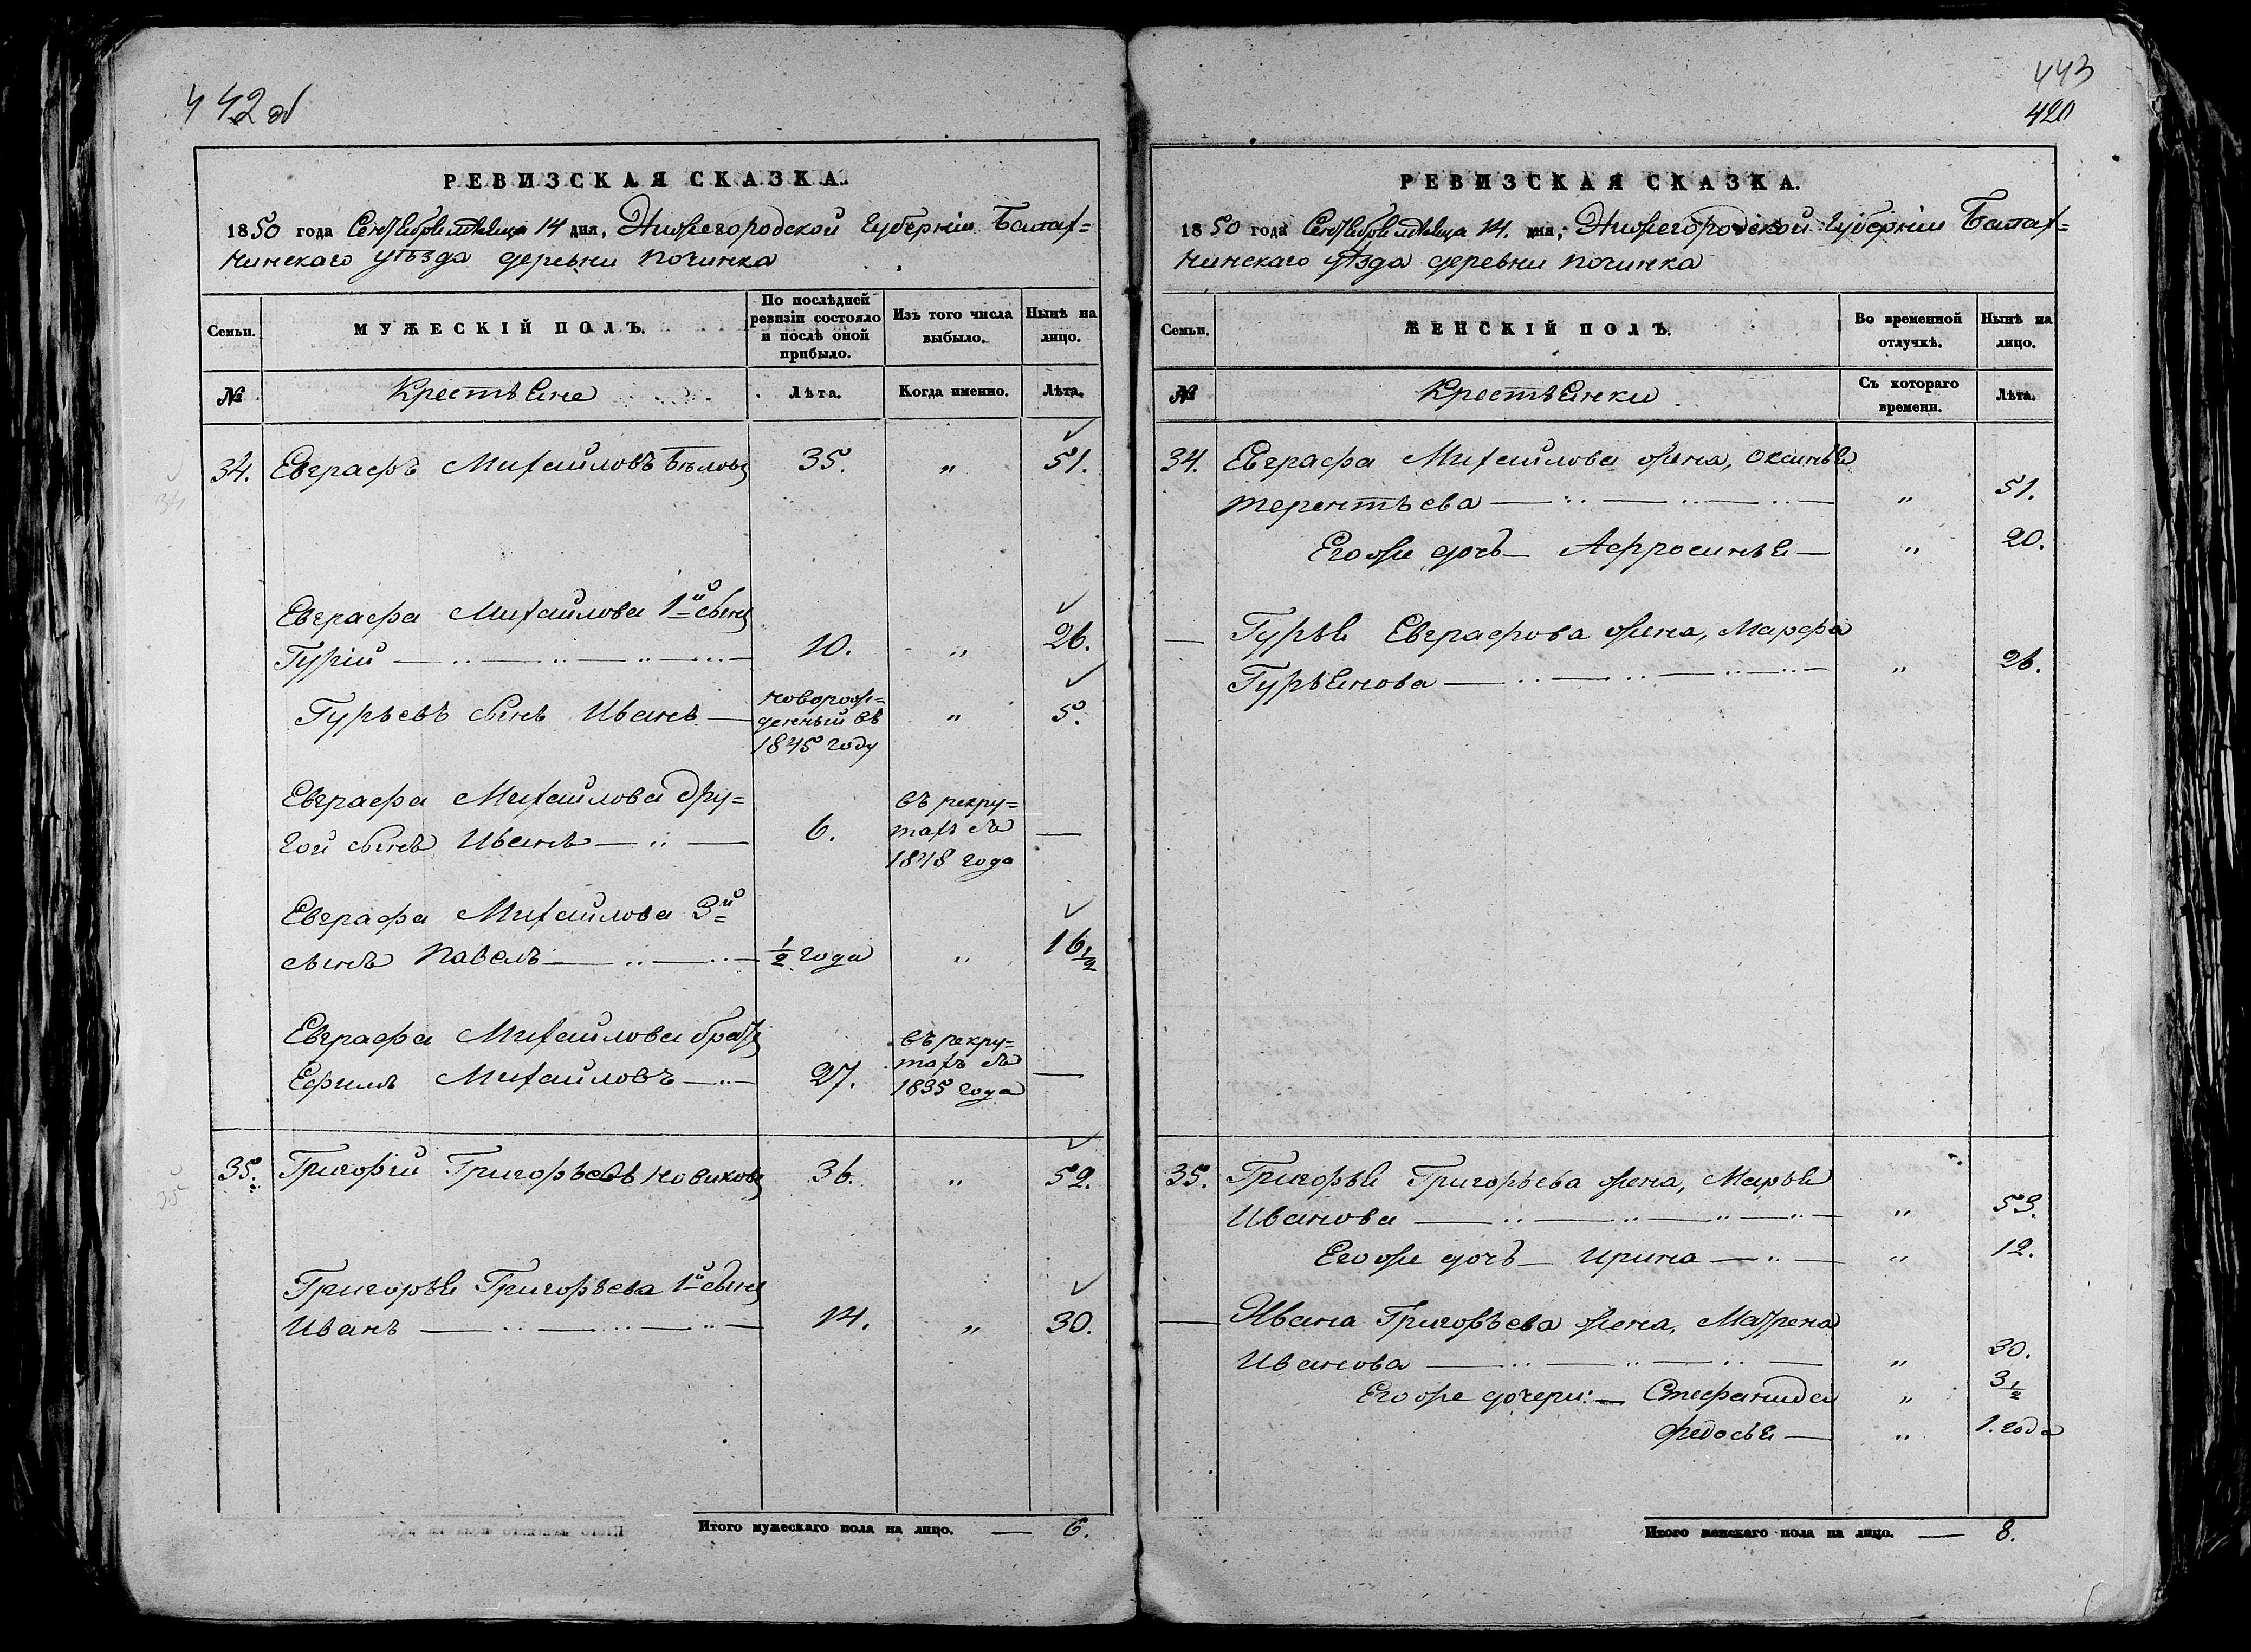 442 об
РЕВИЗСКАЯ СКАЗКА.
1850 года Сентября месяца 14 дня, Нижегородской Губерніи Балах=
нинскаго уѣзда деревни Починка
Семьи.
МУЖЕСКІЙ ПОЛЪ.
По послѣдней ревизіи состояло и послѣ оной прибыло.
Изъ того числа выбыло.
Нынѣ на лицо.
№
Крестьяне
Лѣта.
Когда именно.
Лѣта.
34. Евграфъ Михайловъ Бѣловъ 35. " 51.
Евграфа Михайлова 1й сынъ
Гурій 10. " 26.
Гурьевъ сынъ Иванъ новорож=
денный въ
1845 году " 5.
Евграфа Михайлова дру=
гой сынъ Иванъ 6. въ рекру=
тахъ съ
1848 года —
Евграфа Михайлова 3й
сынъ Павелъ ½ года " 16½
Евграфа Михайлова братъ
Ефимъ Михайловъ 27. въ рекру=
тахъ съ
1835 года —
35. Григорій Григорьевъ Новиковъ 36. " 52.
Григорья Григорьева 1й сынъ
Иванъ 14. " 30.
Итого мужескаго пола на лицо. — 6.
443
420
РЕВИЗСКАЯ СКАЗКА.
1850 года Сентября месяца 14. дня, Нижегородской Губерніи Балах=
нинскаго уѣзда деревни Починка
Семьи.
ЖЕНСКІЙ ПОЛЪ.
Во временной отлучкѣ.
Нынѣ на лицо.
№
Крестьянки
Съ котораго времени.
Лѣта.
34. Евграфа Михайлова жена, Оксинья
Терентьева " 51.
Его же дочь — Афросинья — " 20.
— Гурья Евграфова жена, Марфа
Гурьянова " 26.
35. Григорья Григорьева жена, Марья
Иванова " 53.
Его же дочь — Ирина " 12.
— Ивана Григорьева жена, Матрена
Иванова " 30.
Его же дочери: — Стефанида " 3½
Федосья — " 1. года
Итого женскаго пола на лицо. — 8.